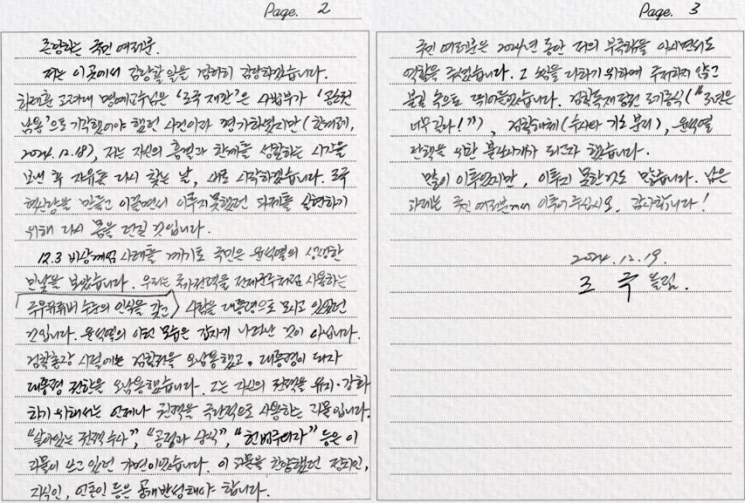 Page. 2
존경하는 국민 여러분.
저는 이곳에서 감당할 일을 감히 감당하겠습니다.
하태훈 고려대 명예교수님은 '조국 재판'은 사법부가 '공소권
남용'으로 기각했어야 했던 사건이라 평가하였지만 (한겨레,
2024.12.18), 저는 자신의 흠결과 한계를 성찰하는 시간을
보낸 후 자유를 다시 찾는 날, 새로 시작하겠습니다. 조국
혁신당을 만들고 이끌면서 이루지 못했던 과제를 실현하기
위해 다시 몸을 던질 것입니다.
12.3 비상계엄 사태를 계기로 국민은 윤석열의 생생한
민낯을 보았습니다. 우리는 국가권력을 전제군주처럼 사용하는
극우유튜버 수준의 인식을 갖고 사람을 대통령으로 모시고 있었던
것입니다. 윤석열의 이런 모습은 갑자기 나타난 것이 아닙니다.
검찰총장 시절에는 검찰권을 오남용했고, 대통령이 되자
대통령 권한을 오남용했습니다. 그는 자신의 권력을 유지·강화
하기 위해서는 언제나 권력을 극단적으로 사용하는 괴물입니다.
"살아있는 권력 수사", "공정과 상식", "헌법주의자" 등은 이
괴물이 쓰고 있던 가면이었습니다. 이 괴물을 찬양했던 정치인,
지식인, 언론인 등은 공개반성해야 합니다.
Page. 3
국민 여러분은 2024년 동안 저의 부족함을 아시면서도
역할을 주셨습니다. 그 소임을 다하기 위하여 주저하지 않고
불길 속으로 뛰어들었습니다. 검찰독재정권 조기종식("3년은
너무 길다!"), 검찰해체(수사와 기소 분리), 윤석열
탄핵을 위한 불쏘시개가 되고자 했습니다.
많이 이루었지만, 이루지 못한 것도 많습니다. 남은
과제는 국민 여러분께서 이루어 주십시오. 감사합니다!
2024.12.19.
조 국 올림.